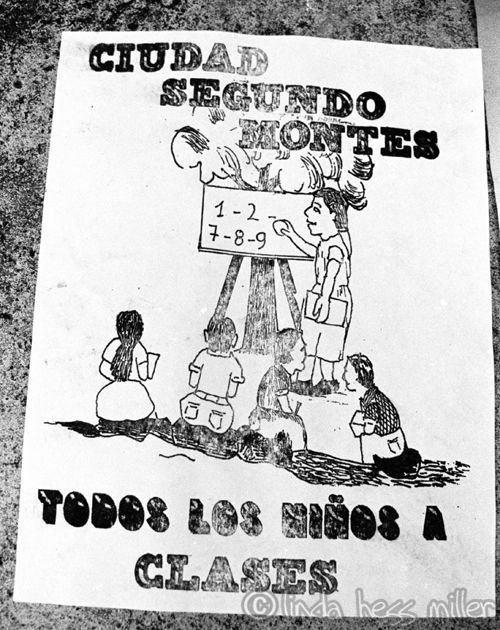 CIUDAD
SEGUNDO
MONTES
1-2-
7-8-9
TODOS LOS NIÑOS A
CLASES
©linda hess miller